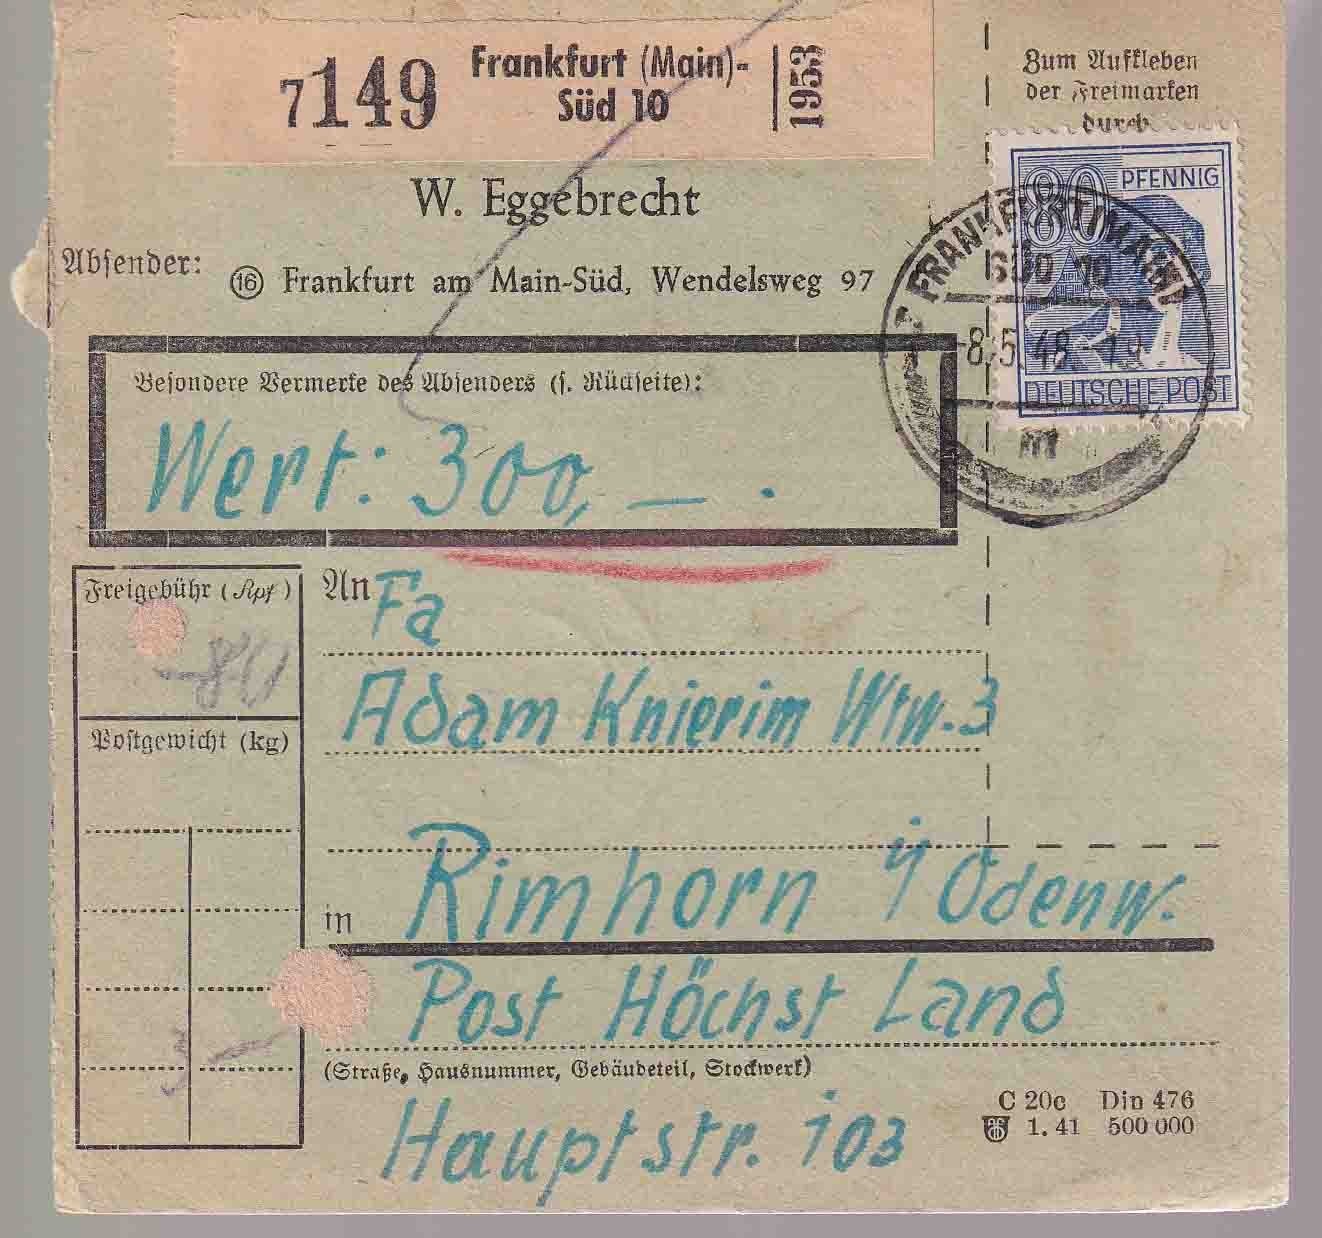 7149 Frankfurt (Main)-
Süd 10
1953
Zum Aufkleben
der Freimarken
durch
80 PFENNIG
DEUTSCHE POST
FRANKFURT (MAIN)
SÜD 10
-8.5.48.18
m
W. Eggebrecht
Absender: ⑯ Frankfurt am Main-Süd, Wendelsweg 97
Besondere Vermerke des Absenders (s. Rückseite):
Wert: 300,— .
Freigebühr (Rpf)
80
Postgewicht (kg)
3 —
An Fa
Adam Knierim Wtw. 3
in Rimhorn i/Odenw.
Post Höchst Land
(Straße, Hausnummer, Gebäudeteil, Stockwerk)
Hauptstr. 103
C 20c Din 476
1. 41 500 000